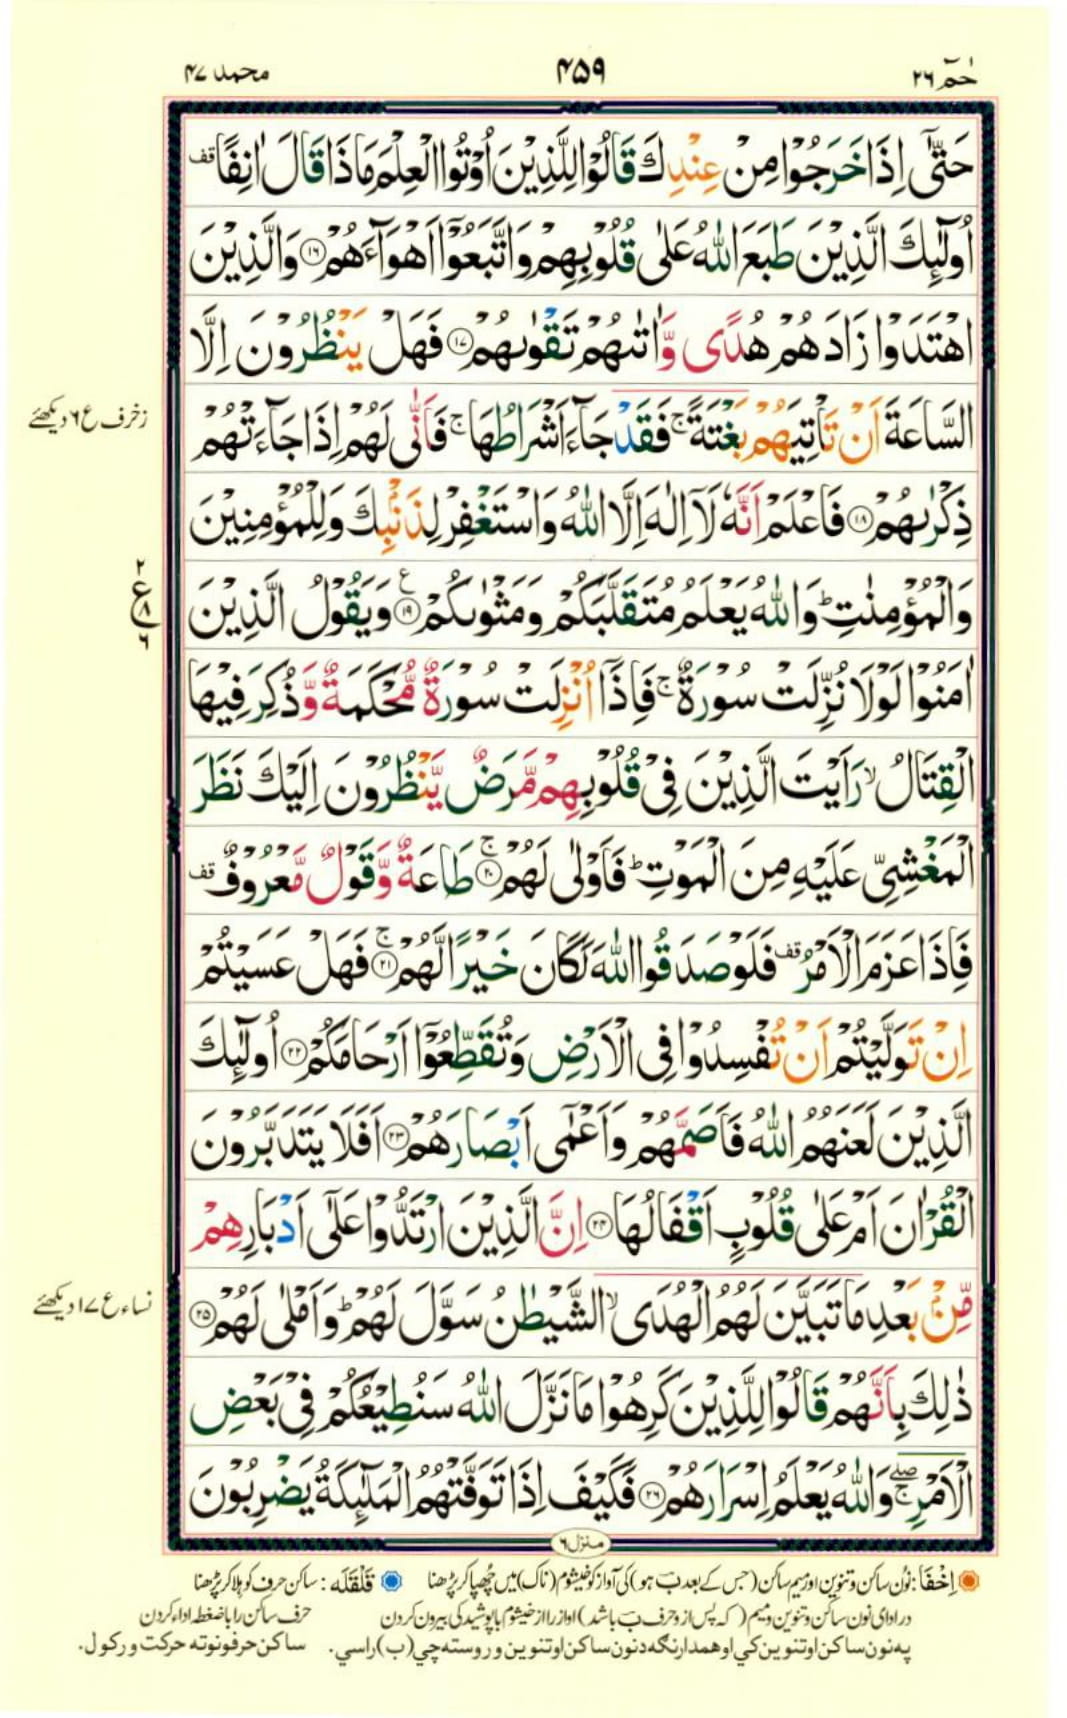 حٰمٓ ۲۶
۴۵۹
محمد ۴۷
حَتّٰۤى اِذَا خَرَجُوْا مِنْ عِنْدِكَ قَالُوْا لِلَّذِيْنَ اُوْتُوا الْعِلْمَ مَاذَا قَالَ اٰنِفًا قف
اُولٰٓئِكَ الَّذِيْنَ طَبَعَ اللّٰهُ عَلٰى قُلُوْبِهِمْ وَاتَّبَعُوْۤا اَهْوَآءَهُمْ ۝۱۶ وَالَّذِيْنَ
اهْتَدَوْا زَادَهُمْ هُدًى وَّاٰتٰىهُمْ تَقْوٰىهُمْ ۝۱۷ فَهَلْ يَنْظُرُوْنَ اِلَّا
السَّاعَةَ اَنْ تَاْتِيَهُمْ بَغْتَةً ۚ فَقَدْ جَآءَ اَشْرَاطُهَا ۚ فَاَنّٰى لَهُمْ اِذَا جَآءَتْهُمْ
زخرف ع ۶ دیکھئے
ذِكْرٰىهُمْ ۝۱۸ فَاعْلَمْ اَنَّهٗ لَاۤ اِلٰهَ اِلَّا اللّٰهُ وَاسْتَغْفِرْ لِذَنْۢبِكَ وَلِلْمُؤْمِنِيْنَ
وَالْمُؤْمِنٰتِ ؕ وَاللّٰهُ يَعْلَمُ مُتَقَلَّبَكُمْ وَمَثْوٰىكُمْ ۝۱۹ ع وَيَقُوْلُ الَّذِيْنَ
۲ ع ۸ ۶
اٰمَنُوْا لَوْلَا نُزِّلَتْ سُوْرَةٌ ۚ فَاِذَاۤ اُنْزِلَتْ سُوْرَةٌ مُّحْكَمَةٌ وَّذُكِرَ فِيْهَا
الْقِتَالُ ۙ رَاَيْتَ الَّذِيْنَ فِيْ قُلُوْبِهِمْ مَّرَضٌ يَّنْظُرُوْنَ اِلَيْكَ نَظَرَ
الْمَغْشِيِّ عَلَيْهِ مِنَ الْمَوْتِ ؕ فَاَوْلٰى لَهُمْ ۝۲۰ ۚ طَاعَةٌ وَّقَوْلٌ مَّعْرُوْفٌ قف
فَاِذَا عَزَمَ الْاَمْرُ قف فَلَوْ صَدَقُوا اللّٰهَ لَكَانَ خَيْرًا لَّهُمْ ۝۲۱ ۚ فَهَلْ عَسَيْتُمْ
اِنْ تَوَلَّيْتُمْ اَنْ تُفْسِدُوْا فِي الْاَرْضِ وَتُقَطِّعُوْۤا اَرْحَامَكُمْ ۝۲۲ اُولٰٓئِكَ
الَّذِيْنَ لَعَنَهُمُ اللّٰهُ فَاَصَمَّهُمْ وَاَعْمٰۤى اَبْصَارَهُمْ ۝۲۳ اَفَلَا يَتَدَبَّرُوْنَ
الْقُرْاٰنَ اَمْ عَلٰى قُلُوْبٍ اَقْفَالُهَا ۝۲۴ اِنَّ الَّذِيْنَ ارْتَدُّوْا عَلٰۤى اَدْبَارِهِمْ
مِّنْۢ بَعْدِ مَا تَبَيَّنَ لَهُمُ الْهُدَى ۙ الشَّيْطٰنُ سَوَّلَ لَهُمْ ؕ وَاَمْلٰى لَهُمْ ۝۲۵
نساء ع ۱۷ دیکھئے
ذٰلِكَ بِاَنَّهُمْ قَالُوْا لِلَّذِيْنَ كَرِهُوْا مَا نَزَّلَ اللّٰهُ سَنُطِيْعُكُمْ فِيْ بَعْضِ
الْاَمْرِ ۖۚ وَاللّٰهُ يَعْلَمُ اِسْرَارَهُمْ ۝۲۶ فَكَيْفَ اِذَا تَوَفَّتْهُمُ الْمَلٰٓئِكَةُ يَضْرِبُوْنَ
منزل ۶
اِخْفَا: نُون ساکن و تنوین اور میم ساکن (جس کے بعد ب ہو) کی آواز کو خیشوم (ناک) میں چُھپا کر پڑھنا قَلْقَلَه: ساکن حرف کو ہلا کر پڑھنا
در ادای نون ساکن و تنوین و میم (که پس از و حرف ب باشد) آواز را از خیشوم با پوشیدگی بیرون کردن حرف ساکن را با ضغطه ادا کردن
په نون ساکن او تنوین کي او همدارنگه د نون ساکن او تنوین وروسته چي (ب) راسي. ساکن حرفونو ته حرکت ورکول.